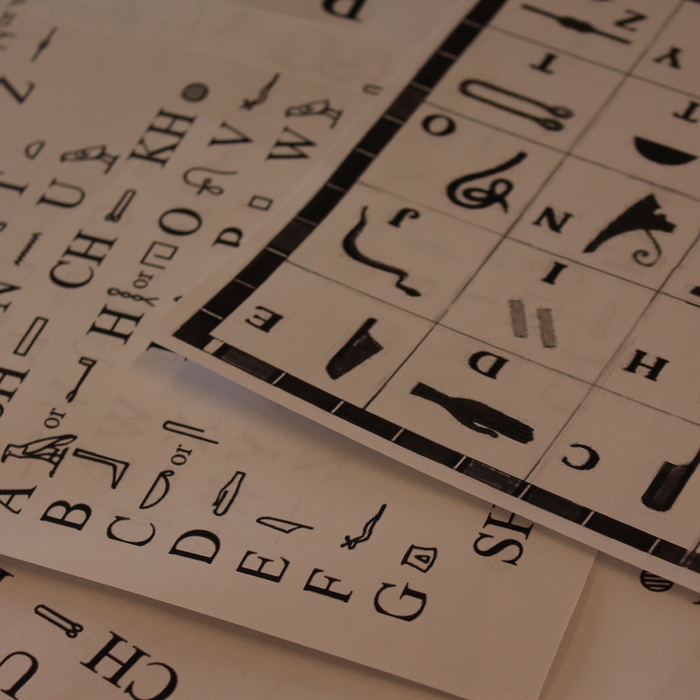 Z
T
U
KH
V
W
N
CH
O
P
SH
H or
or
A
B
C or
D
E
F
G
SH
U
CH
Z
T
Y
T
O
J
N
I
E
D
H
C